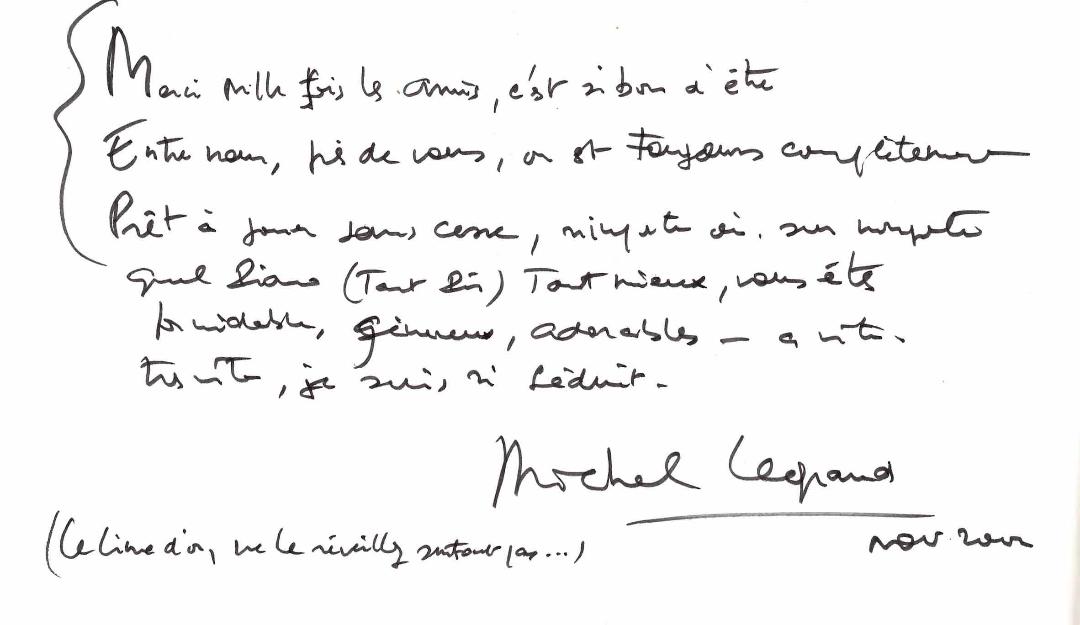 Merci mille fois les amis, c'est si bon d'être
Entre nous, près de vous, on est toujours complètement
Prêt à jouer sans cesse, n'importe où. sur n'importe
quel Piano (Tant Pis) Tant mieux, vous êtes
formidables, généreux, adorables – a vite.
très vite, je suis si séduit.
Michel Legrand
(Le livre d'or, ne le réveillez surtout pas...)
nov. 2002